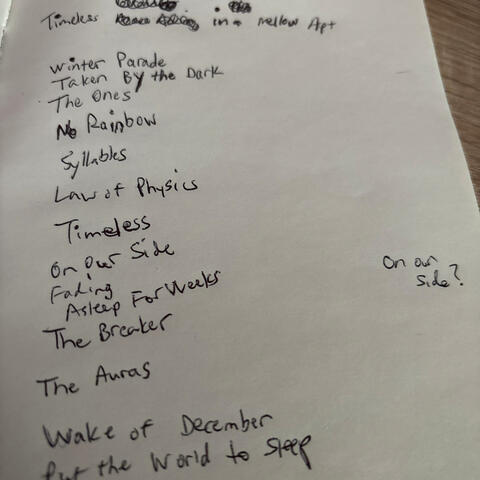 Timeless in a mellow Apt
Winter Parade
Taken By the Dark
The Ones
No Rainbow
Syllables
Law of Physics
Timeless
On Our Side
Fading
Asleep For Weeks
On our
side?
The Breaker
The Auras
Wake of December
Put the World to Sleep